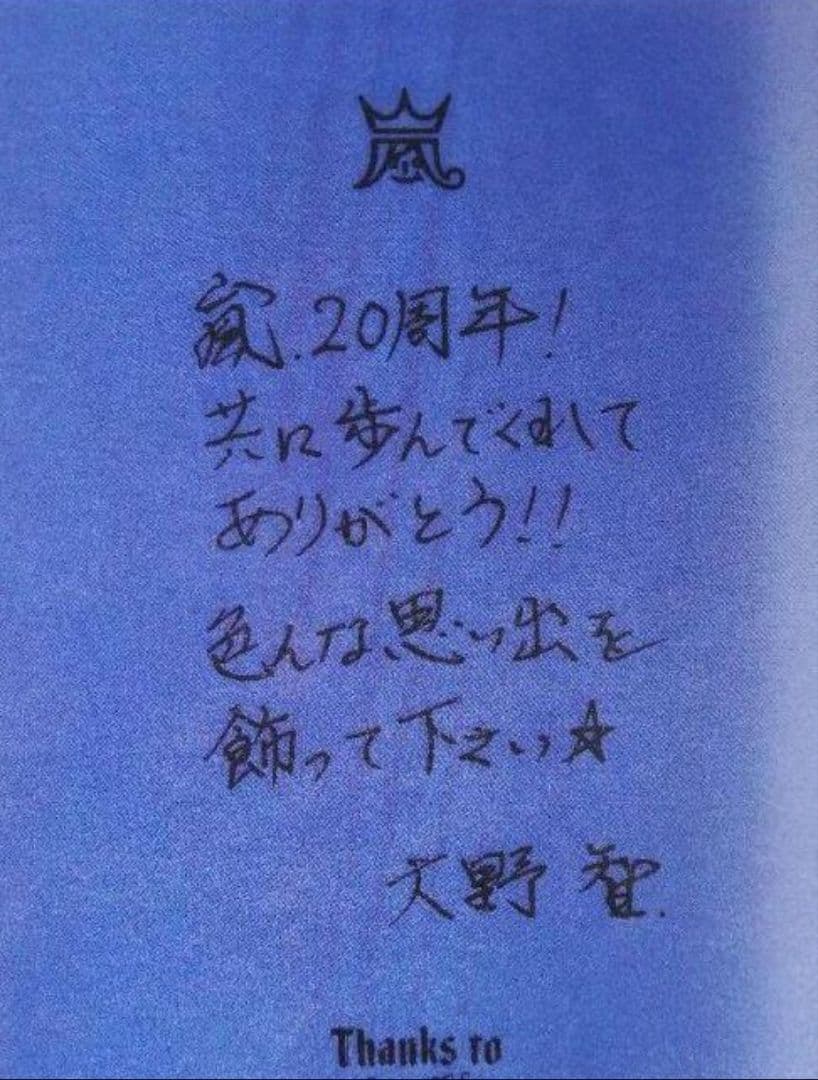 嵐
嵐.20周年!
共に歩んでくれて
ありがとう!!
色んな思い出を
飾って下さい☆
大野 智.
Thanks to